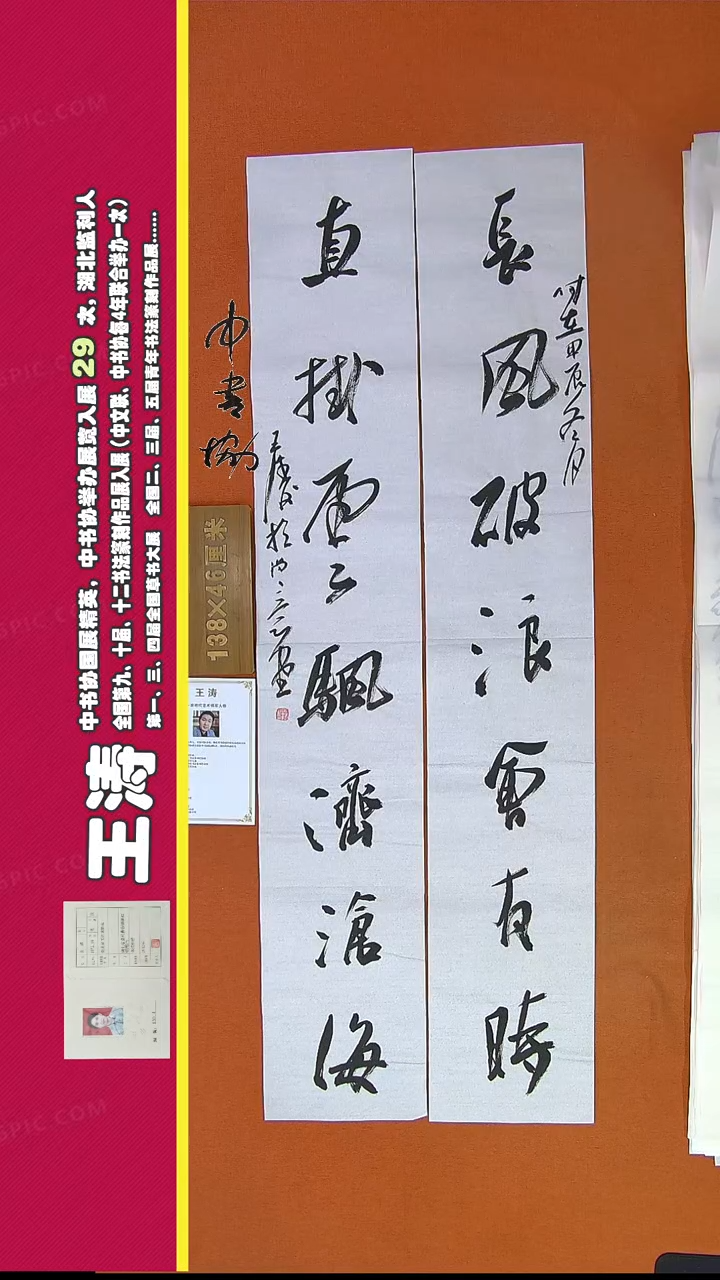 長風破浪會有時
时在甲辰冬月
直掛雲颿濟滄海
中書協
138×46厘米
王涛
王涛
中书协国展精英，中书协举办展赛入展 29 次，湖北监利人
全国第九、十届、十二书法篆刻作品展入展（中文联、中书协每4年联合举办一次）
第一、三、四届全国草书大展 全国二、三届、五届青年书法篆刻作品展......